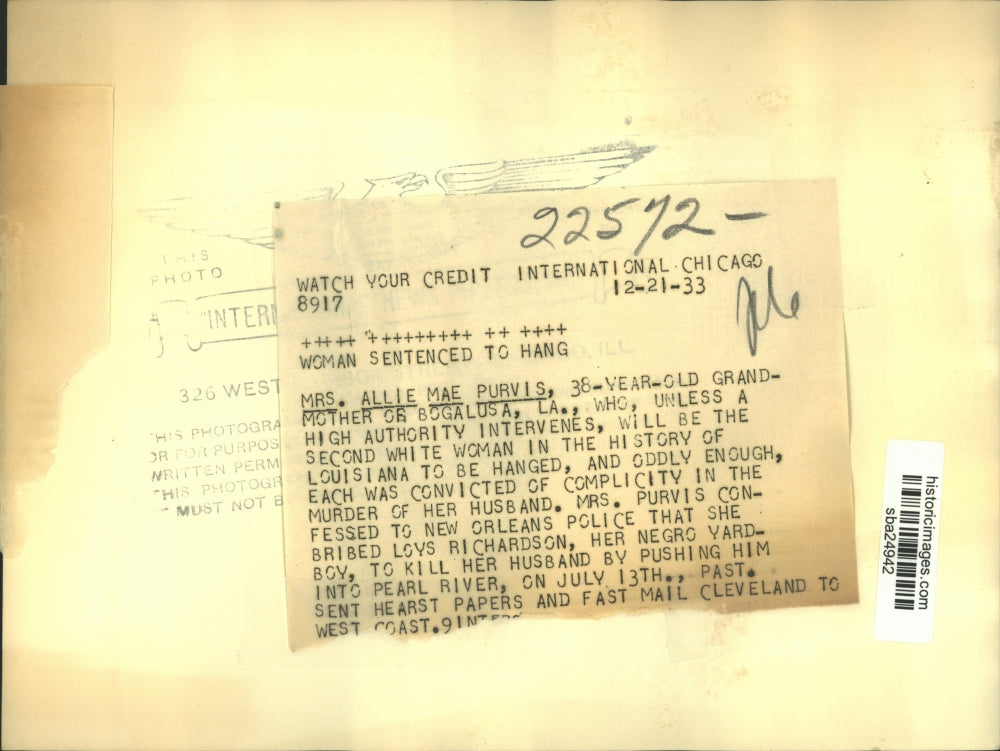 22572-
WATCH YOUR CREDIT INTERNATIONAL CHICAGO
8917 12-21-33
+++++ "+++++++++ ++ ++++
WOMAN SENTENCED TO HANG
MRS. ALLIE MAE PURVIS, 38-YEAR-OLD GRAND-
MOTHER OF BOGALUSA, LA., WHO, UNLESS A
HIGH AUTHORITY INTERVENES, WILL BE THE
SECOND WHITE WOMAN IN THE HISTORY OF
LOUISIANA TO BE HANGED, AND ODDLY ENOUGH,
EACH WAS CONVICTED OF COMPLICITY IN THE
MURDER OF HER HUSBAND. MRS. PURVIS CON-
FESSED TO NEW ORLEANS POLICE THAT SHE
BRIBED LOYS RICHARDSON, HER NEGRO YARD-
BOY, TO KILL HER HUSBAND BY PUSHING HIM
INTO PEARL RIVER, ON JULY 13TH., PAST.
SENT HEARST PAPERS AND FAST MAIL CLEVELAND TO
WEST COAST.
THIS
PHOTO
"INTERN
326 WEST
, ILL.
THIS PHOTOGRA
OR FOR PURPOS
WRITTEN PERM
THIS PHOTOGR
MUST NOT B
historicimages.com
sba24942